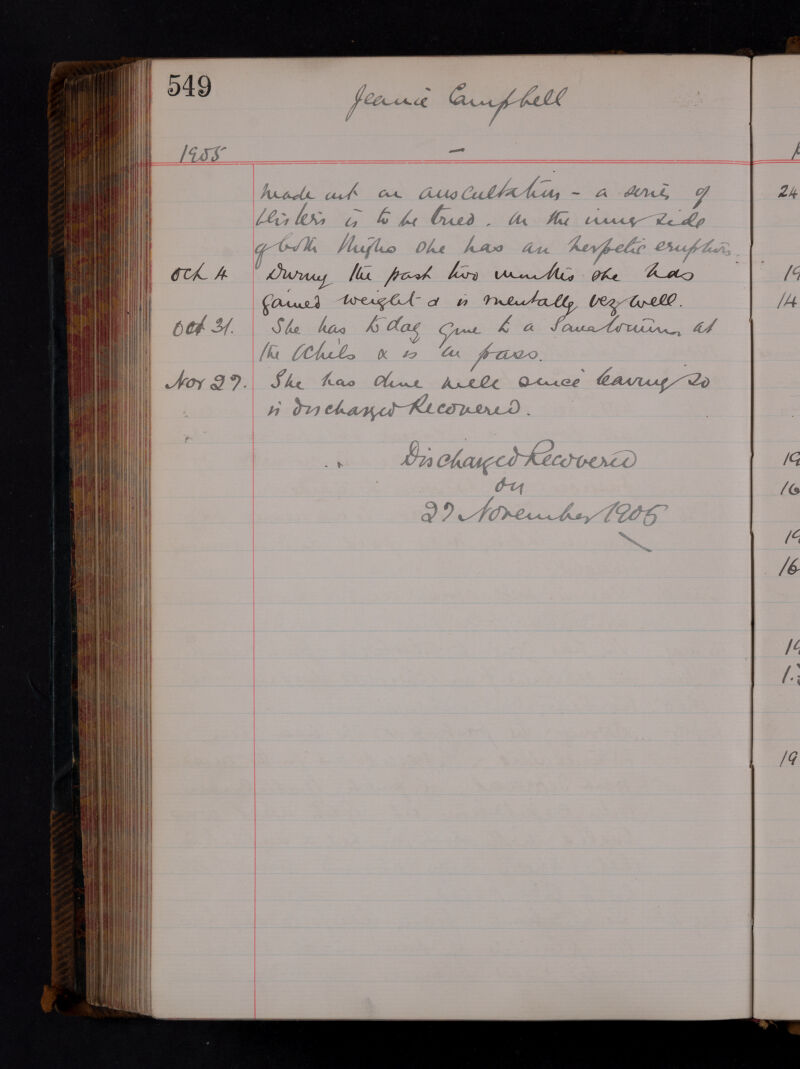 549
Jeanie Campbell
1905
made out on auscultation - a series of
blisters is to be tried. On the inner side
of both thighs she has an herpetic eruption.
Oct 4 During the past two months she has
gained weight & is mentally very well.
Oct 31. She has today gone to a Sanatorium at
the Ochils & is on pass.
Nov 27. She has done well since leaving so
is discharged Recovered.
Discharged Recovered
on
27 November 1905
24
19
14
19
16
19
16
19
19